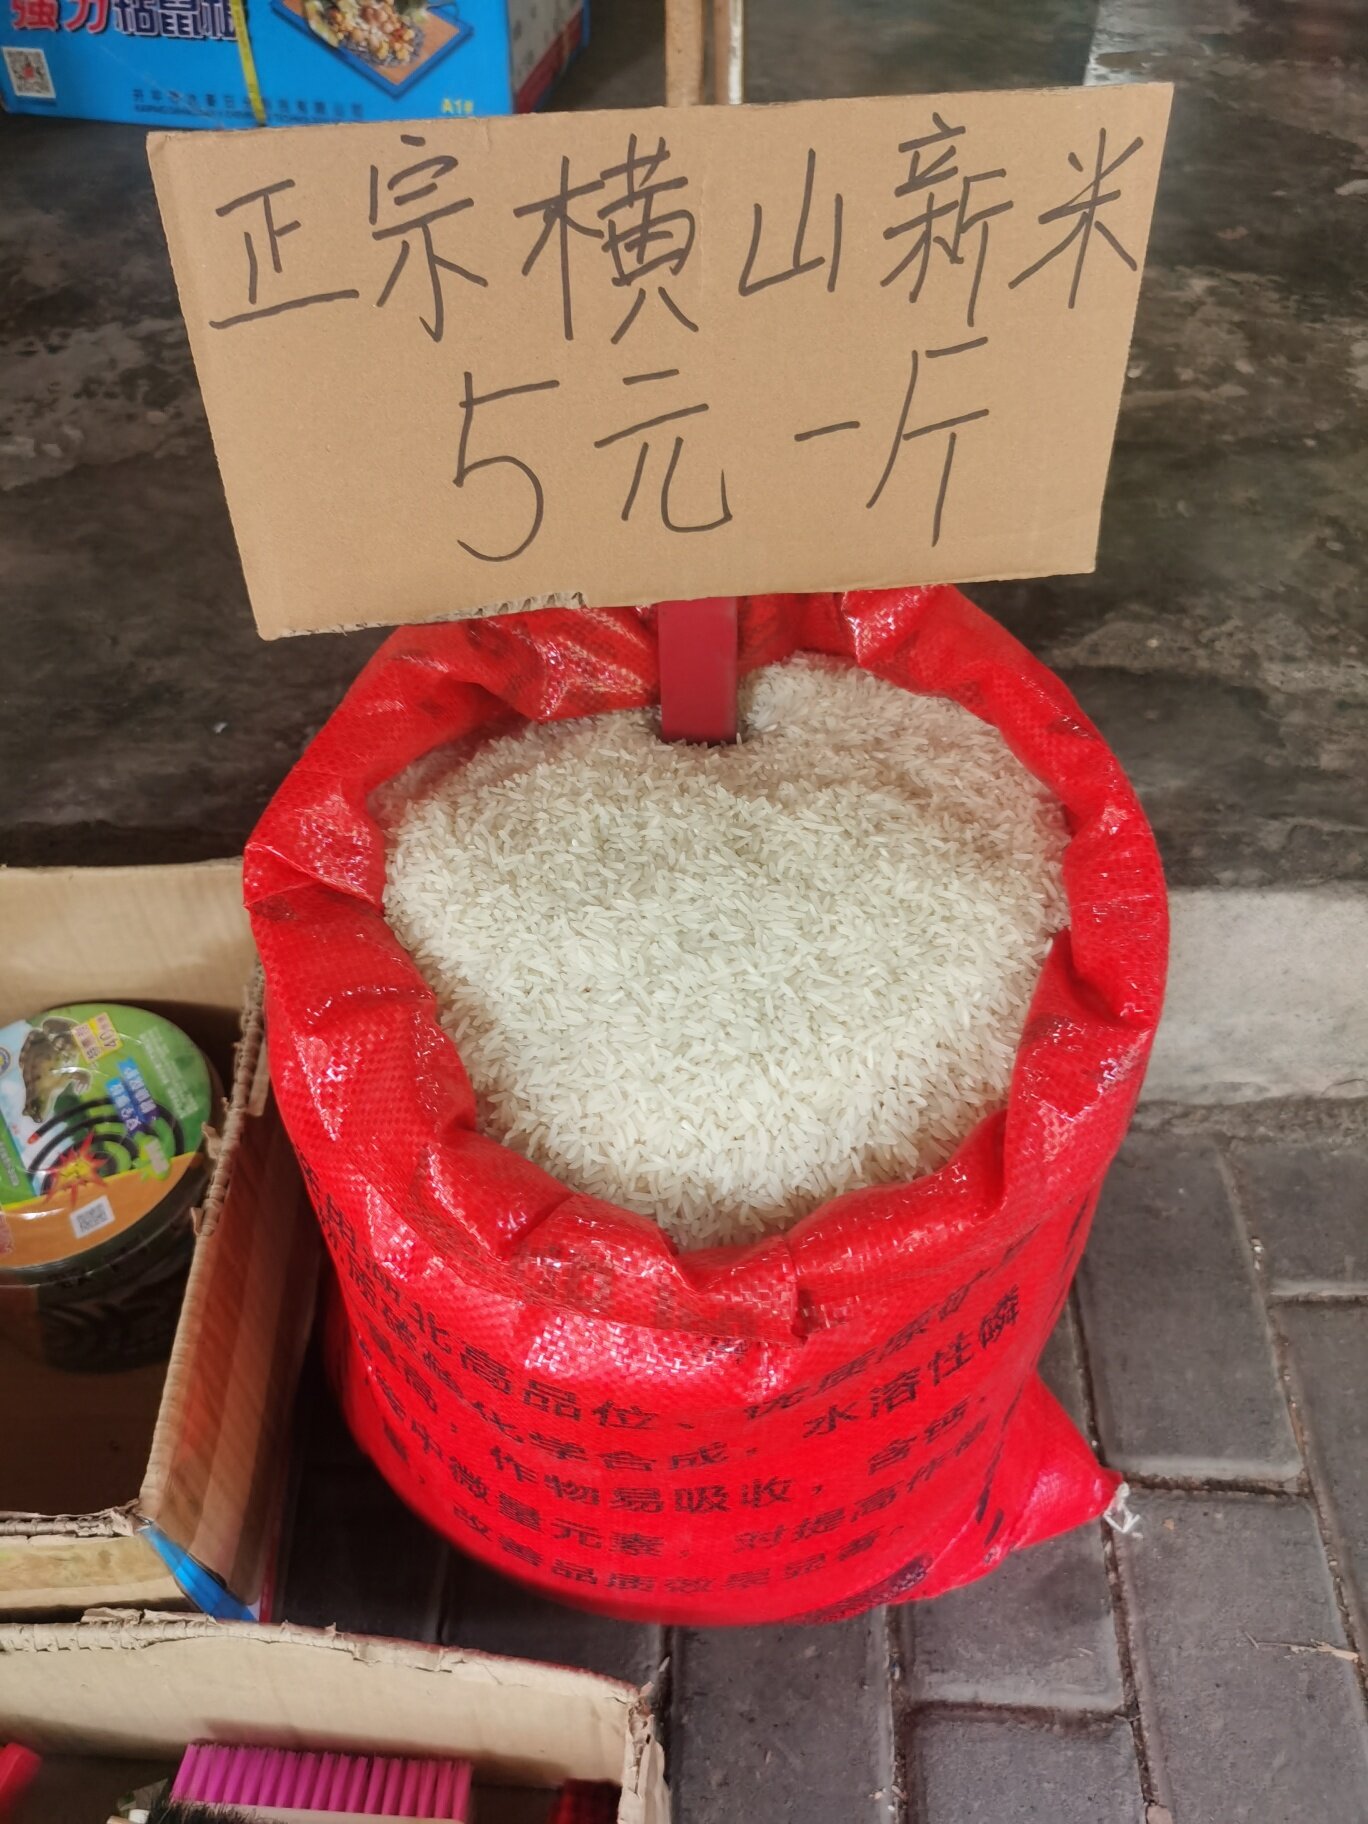 强力粘鼠板
A1#
正宗横山新米
5元一斤
北高品位、优质
化学合成，水溶性磷
作物易吸收，含钙、
中微量元素，对提高作物
改善品质效果显著。